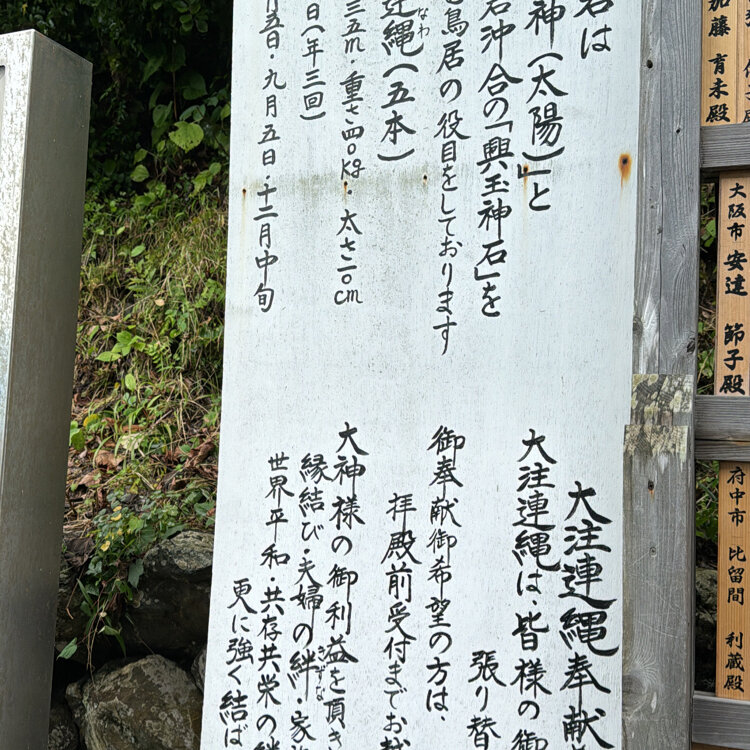 岩は
神(太陽)」と
岩沖合の「興玉神石」を
鳥居の役目をしております
連縄(五本)
なわ
三五m・重さ四〇kg・太さ一〇cm
日(年三回)
月五日・九月五日・十二月中旬
大注連縄奉献
大注連縄は、皆様の御
張り替
御奉献御希望の方は、
拝殿前受付までお越
大神様の御利益を頂き
縁結び・夫婦の絆・家族
きずな
世界平和・共存共栄の絆
更に強く結ば
加藤 育未殿
大阪市 安達 節子殿
府中市 比留間 利蔵殿